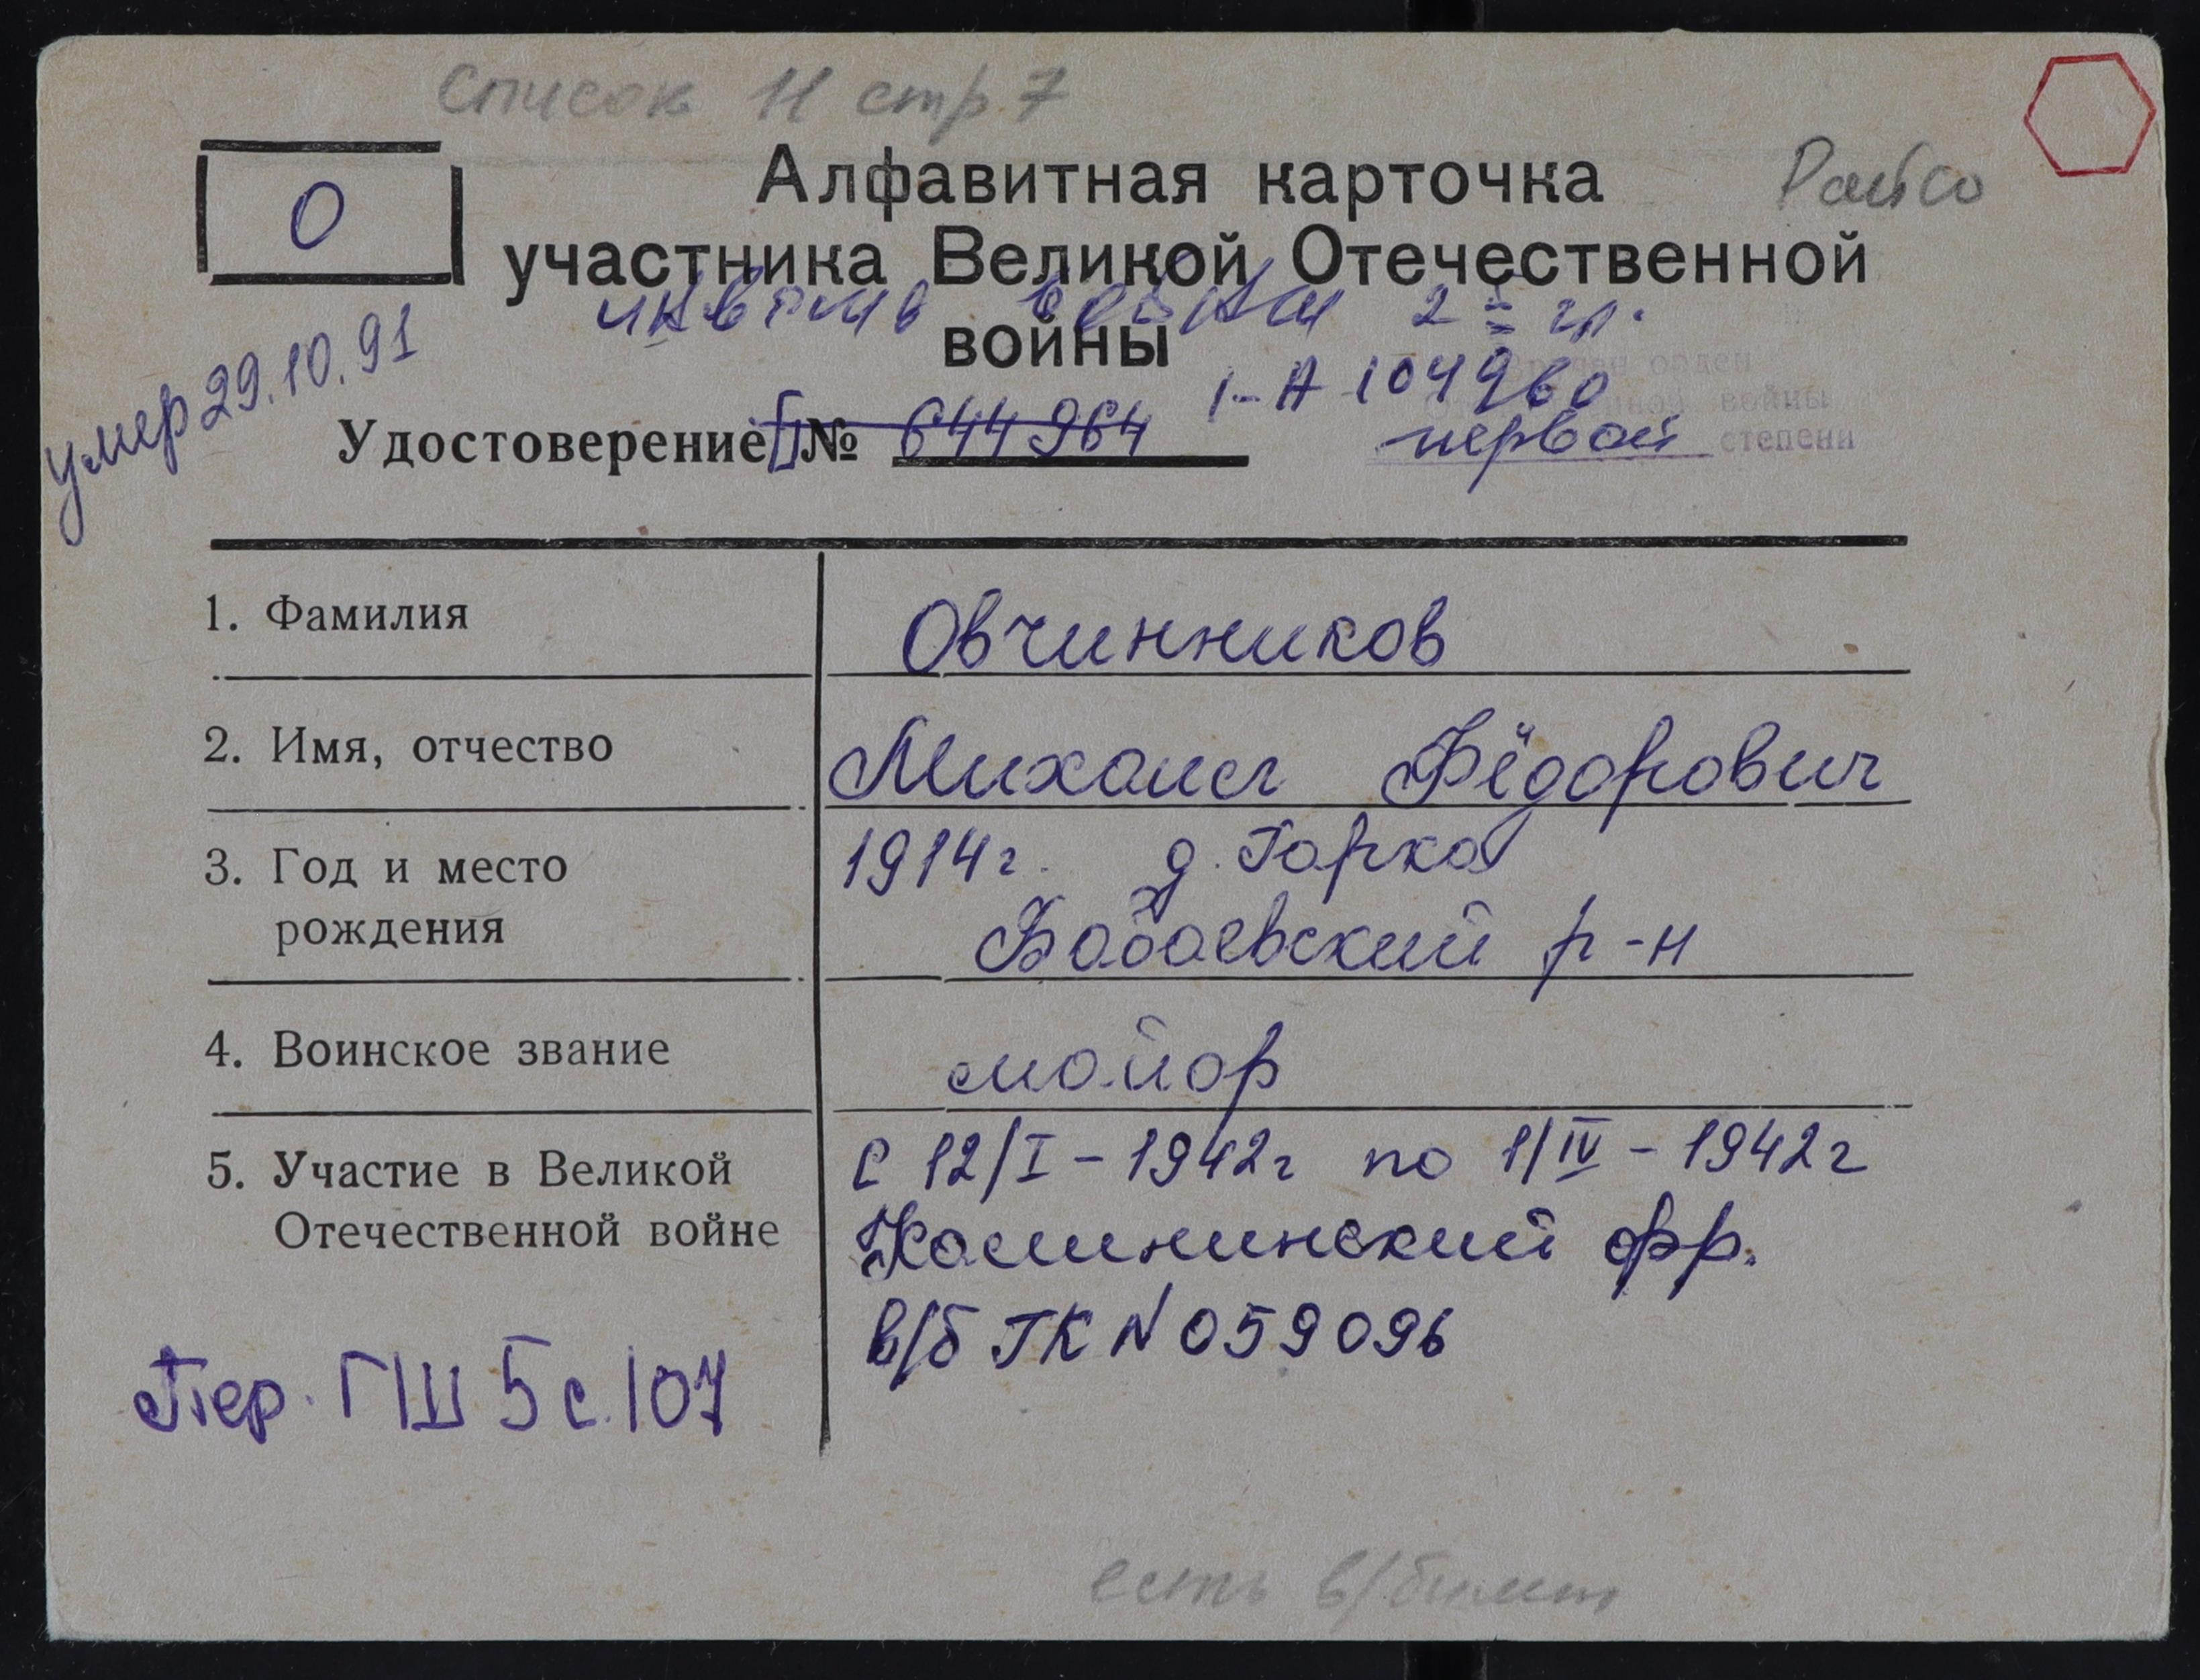 Список 11 стр. 7
О
Алфавитная карточка
Райсо
участника Великой Отечественной
инв войны 2 гр.
войны
умер 29.10.91
Вручен орден
I-А 104960
Отечественной войны
Удостоверение № 644964
первой степени
1. Фамилия Овчинников
2. Имя, отчество Михаил Фёдорович
3. Год и место 1914г. д. Горка
рождения Бабаевский р-н
4. Воинское звание майор
5. Участие в Великой с 12/I-1942г по 1/IV-1942г
Отечественной войне Калининский фр.
в/б ГК N 059096
Пер. ГШ 5 с. 107
есть в/билет